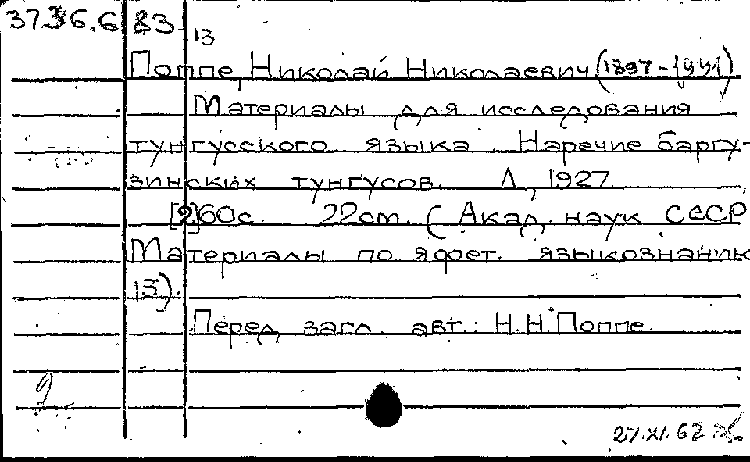 37.36.6 83
13
Поппе, Николай Николаевич (1897-1991)
Материалы для исследования
тунгусского языка Наречие баргу-
зинских тунгусов. Л, 1927
[2]60с. 22cm. (Акад. наук СССР
Материалы по яфет. языкознанию
13).
Перед загл. авт.: Н.Н. Поппе
27.XI.62